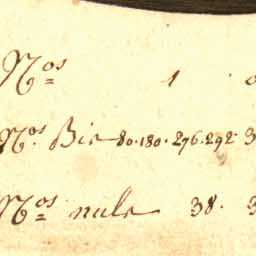 Nos 1
Nos. Bis 80. 180. 276. 292. 3
Nos nule 38. 3